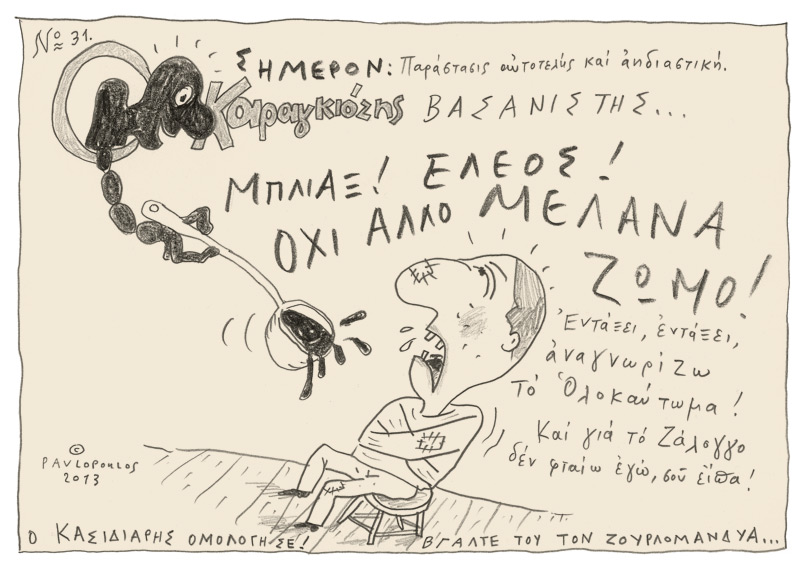 Νο 31.
ΣΗΜΕΡΟΝ: Παράστασις αὐτοτελής καί ἀηδιαστική.
Καραγκιόζης ΒΑΣΑΝΙΣΤΗΣ...
ΜΠΛΙΑΞ! ΕΛΕΟΣ!
ΟΧΙ ΑΛΛΟ ΜΕΛΑΝΑ
ΖΩΜΟ!
Ἐντάξει, ἐντάξει,
ἀναγνωρίζω
τό Ὁλοκαύτωμα!
Καί γιά τό Ζάλογγο
δέν φταίω ἐγώ, σοῦ εἶπα!
©
PAVLOPOULOS
2013
Ο ΚΑΣΙΔΙΑΡΗΣ ΟΜΟΛΟΓΗΣΕ! ΒΓΑΛΤΕ ΤΟΥ ΤΟΝ ΖΟΥΡΛΟΜΑΝΔΥΑ...